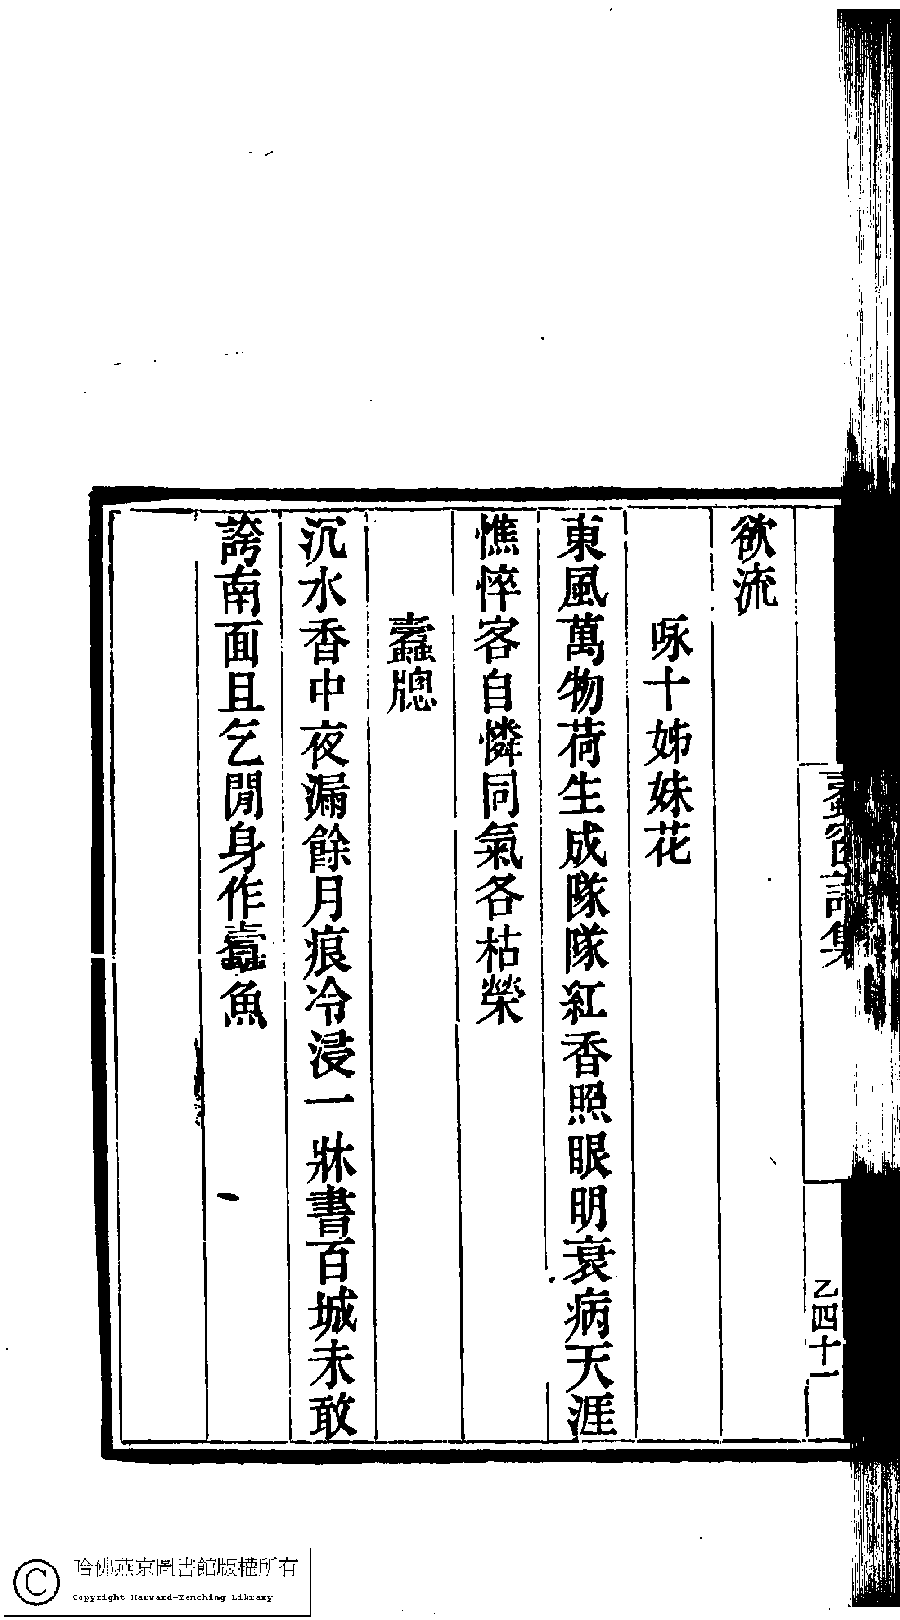 欲流
咏十姊妹花
東風萬物荷生成隊隊紅香照眼明衰病天涯
憔悴客自憐同氣各枯榮
蠹牕
沉水香中夜漏餘月痕冷浸一牀書百城未敢
誇南面且乞閒身作蠹魚
詩集
乙四十一
哈佛燕京圖書館版權所有
Copyright Harvard-Yenching Library